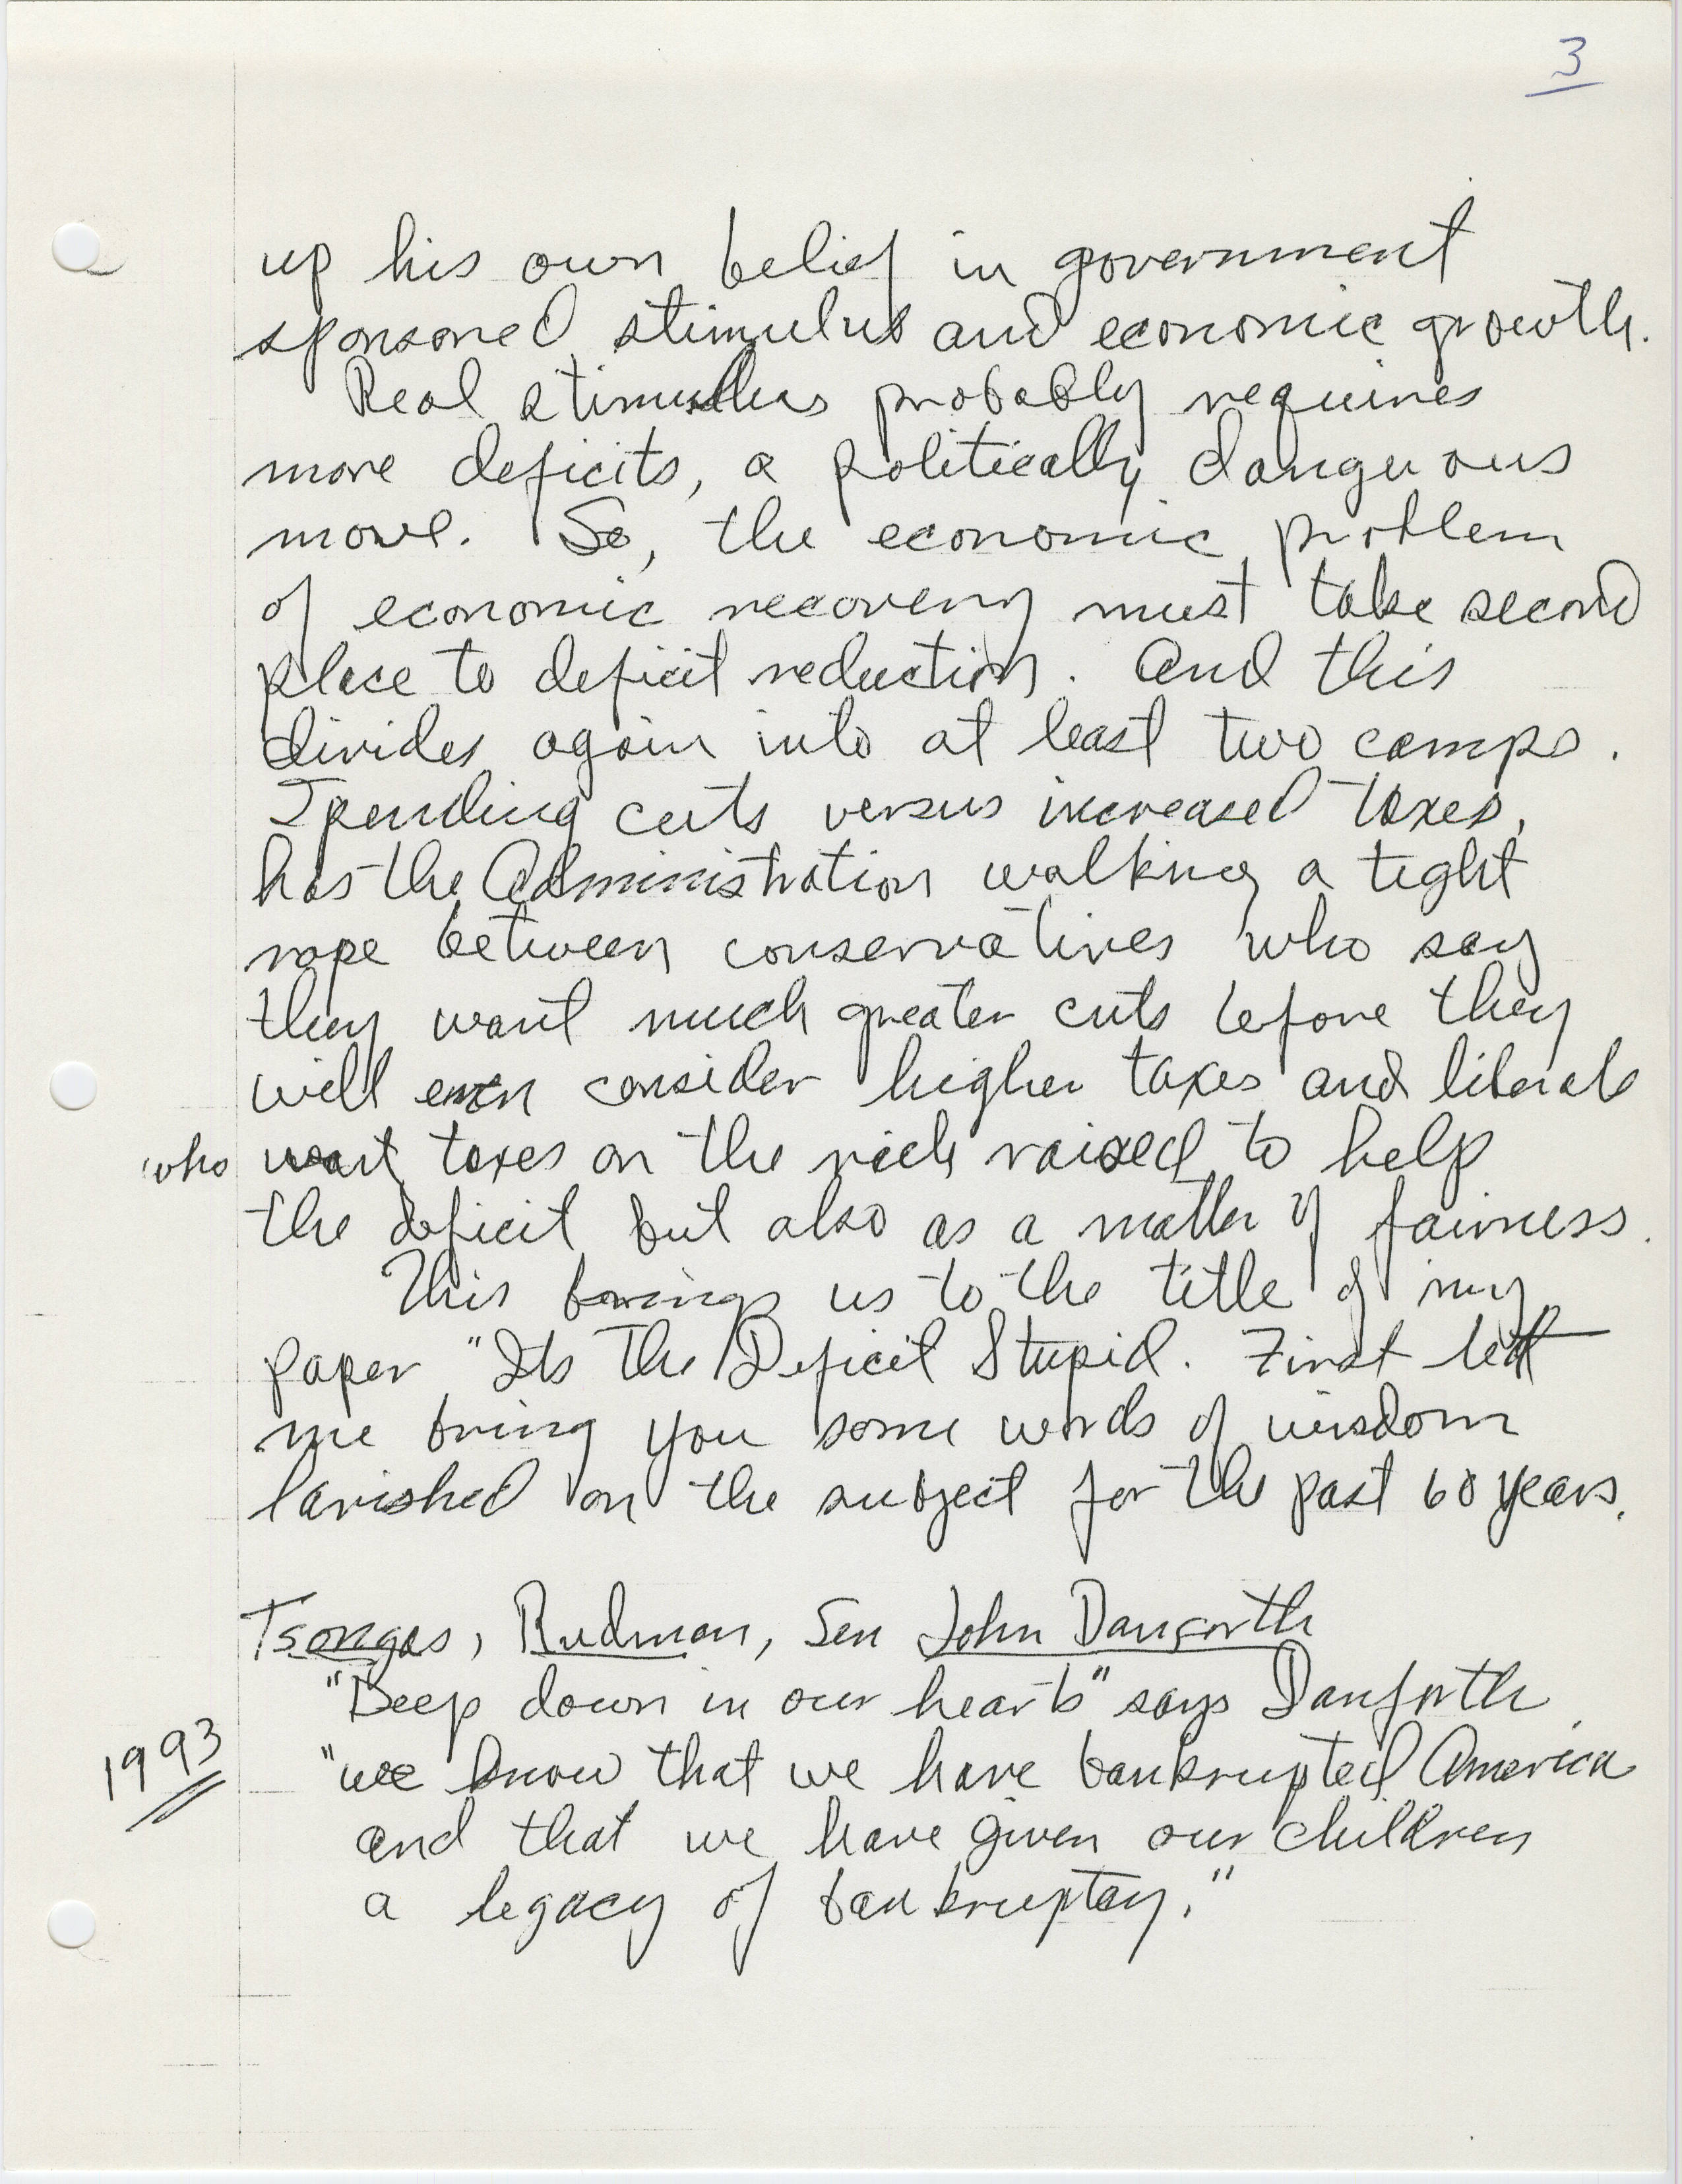 3
up his own belief in government
sponsored stimulus and economic growth.
Real stimulus probably requires
more deficits, a politically dangerous
move. So, the economic problem
of economic recovery must take second
place to deficit reduction. And this
divides again into at least two camps.
Spending cuts versus increased taxes,
has the Administration walking a tight
rope between conservatives who say
they want much greater cuts before they
will even consider higher taxes and liberals
who want taxes on the rich raised to help
the deficit but also as a matter of fairness.
This brings us to the title of my
paper "Its The Deficit Stupid. First let
me bring you some words of wisdom
lavished on the subject for the past 60 years.
Tsongas, Rudman, Sen John Danforth
"Deep down in our hearts" says Danforth,
1993 "we know that we have bankrupted America
and that we have given our children
a legacy of bankruptcy."